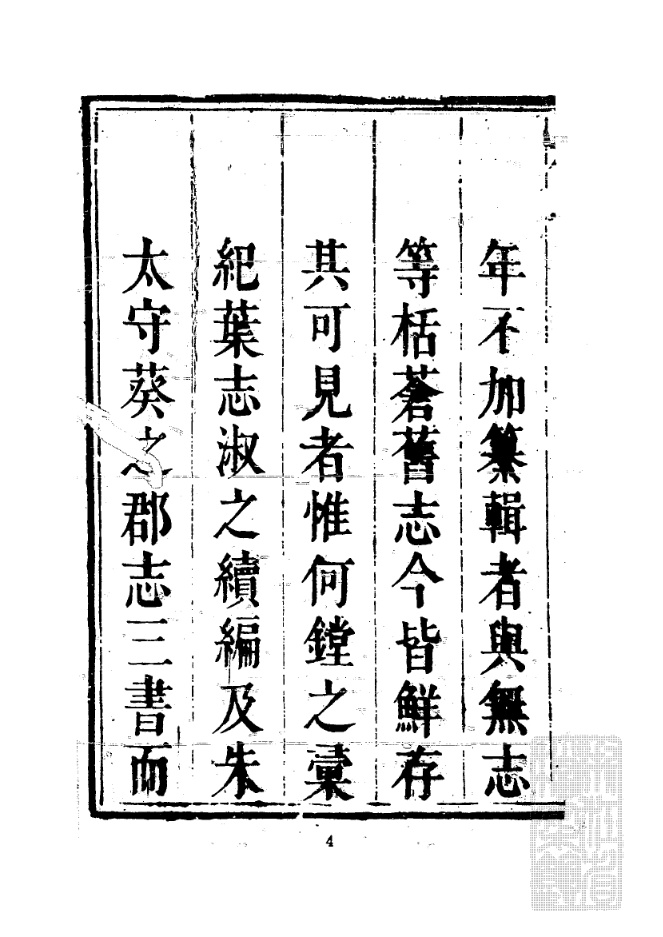 年不加纂輯者與無志
等栝蒼舊志今皆鮮存
其可見者惟何鏜之彚
紀葉志淑之續編及朱
太守葵之郡志三書而
4